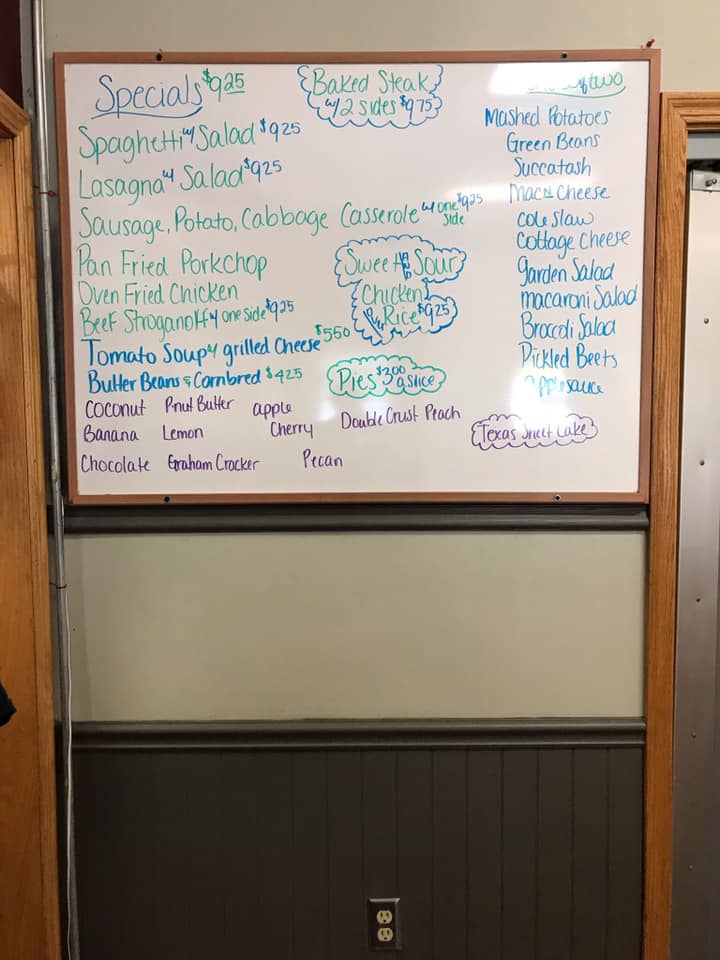 Specials $9.25
Spaghetti w/ Salad $9.25
Lasagna w/ Salad $9.25
Sausage, Potato, Cabbage Casserole w/ one side $9.25
Pan Fried Porkchop
Oven Fried Chicken
Beef Stroganoff w/ one side $9.25
Tomato Soup w/ grilled Cheese $5.50
Butter Beans & Cornbred $4.25
Baked Steak
w/ 2 sides $9.75
Sweet & Sour
Chicken
over Rice $9.25
Pies $3.00 a slice
Coconut P-nut Butter apple
Banana Lemon Cherry Double Crust Peach
Chocolate Graham Cracker Pecan
Texas Sheet Cake
of two
Mashed Potatoes
Green Beans
Succatash
Mac N Cheese
cole slaw
Cottage Cheese
garden Salad
macaroni Salad
Broccoli Salad
Pickled Beets
applesauce